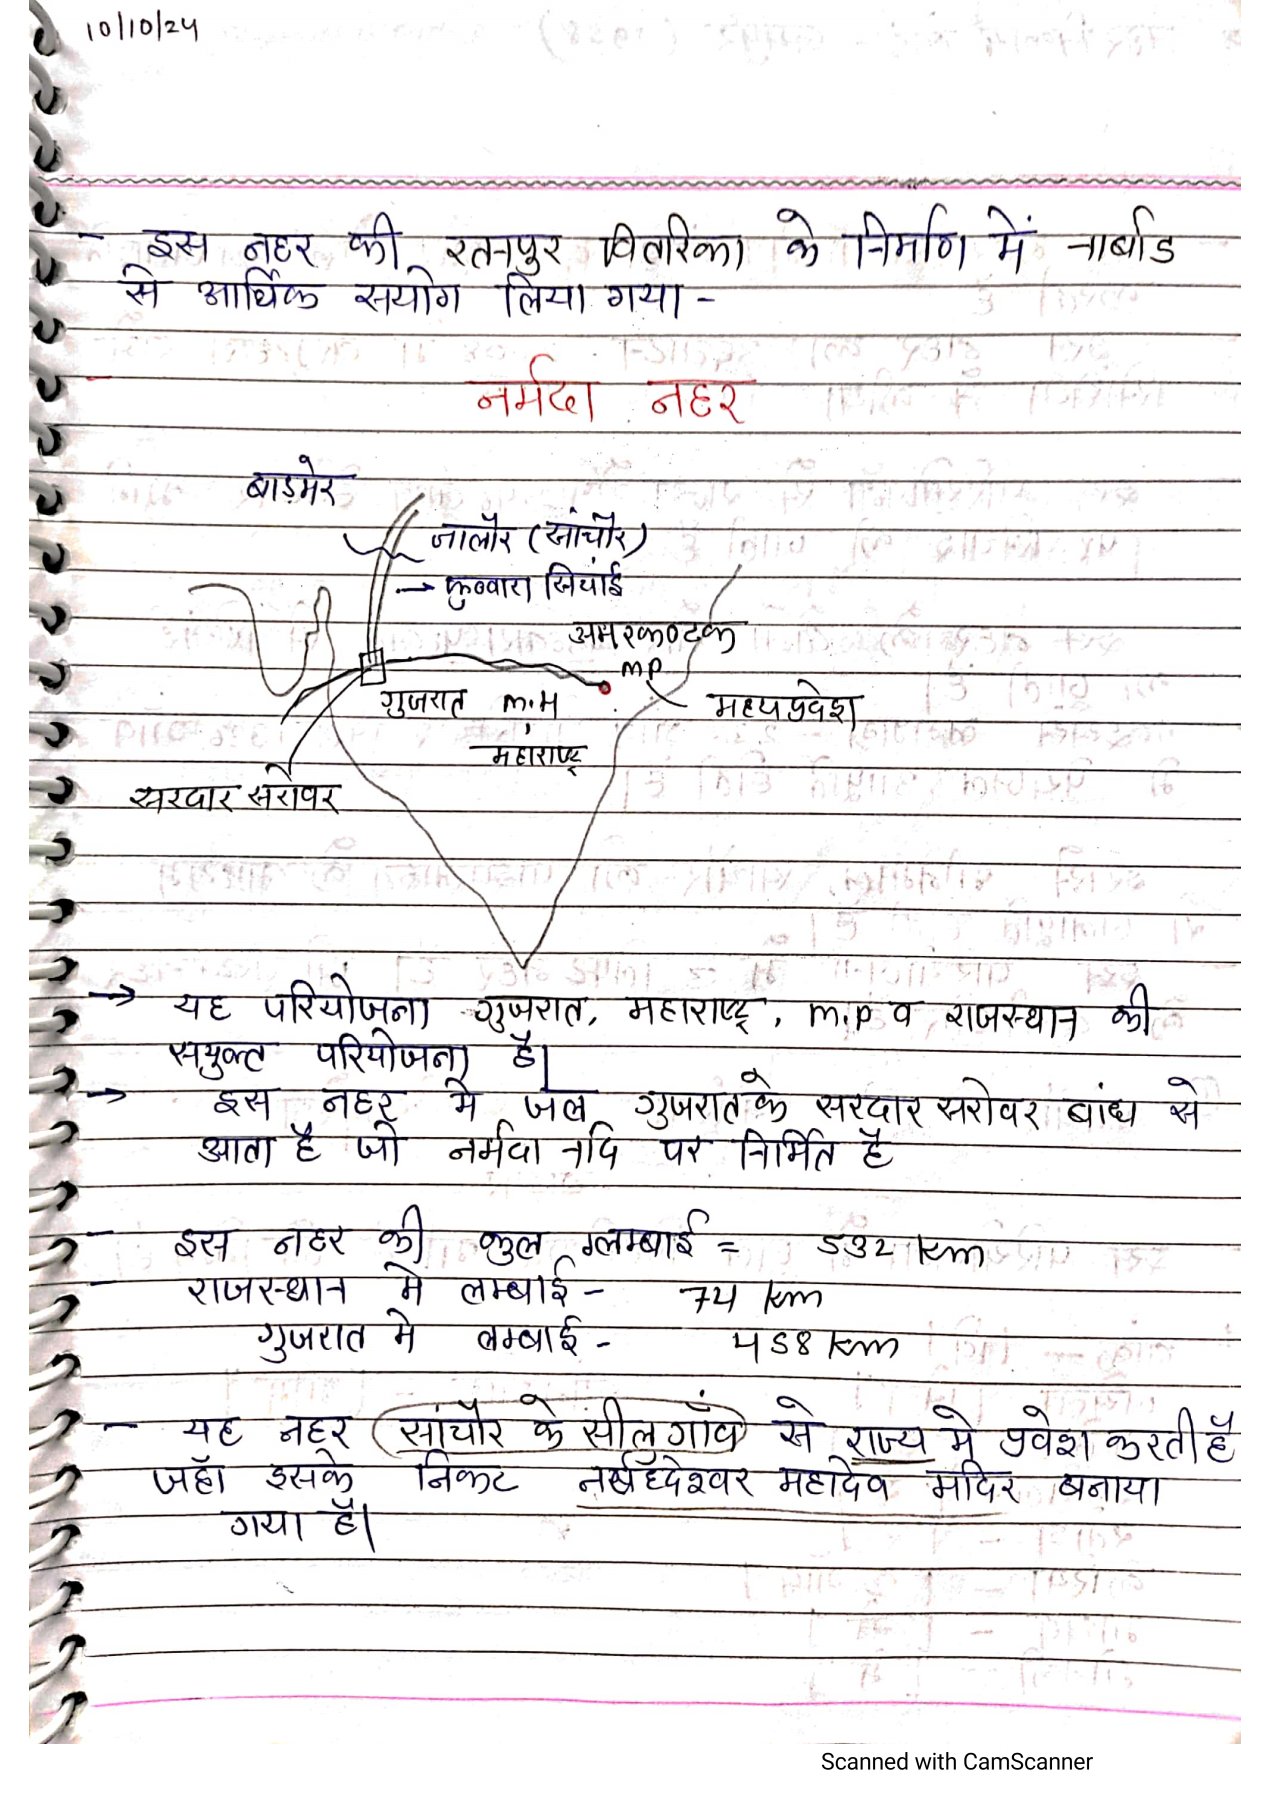 10/10/24
- इस नहर की रतनपुर वितरिका के निर्माण में नार्बाड
से आर्थिक सयोग लिया गया -
नर्मदा नहर
बाड़मेर
जालौर (सांचौर)
→ फुव्वारा सिचांई
अमरकण्टक
MP
गुजरात M.H
मध्यप्रदेश
महाराष्ट्र
सरदार सरोवर
→ यह परियोजना गुजरात, महाराष्ट्र, M.P व राजस्थान की
सयुक्त परियोजना है।
→ इस नहर मे जल गुजरात के सरदार सरोवर बांध से
आता है जो नर्मदा नदि पर निर्मित है
- इस नहर की कुल लम्बाई = 532 km
- राजस्थान मे लम्बाई - 74 km
गुजरात मे लम्बाई - 458 km
- यह नहर सांचौर के सीलू गाँव से राज्य मे प्रवेश करती है
जहाँ इसके निकट महादेव मंदिर बनाया
गया है।
Scanned with CamScanner